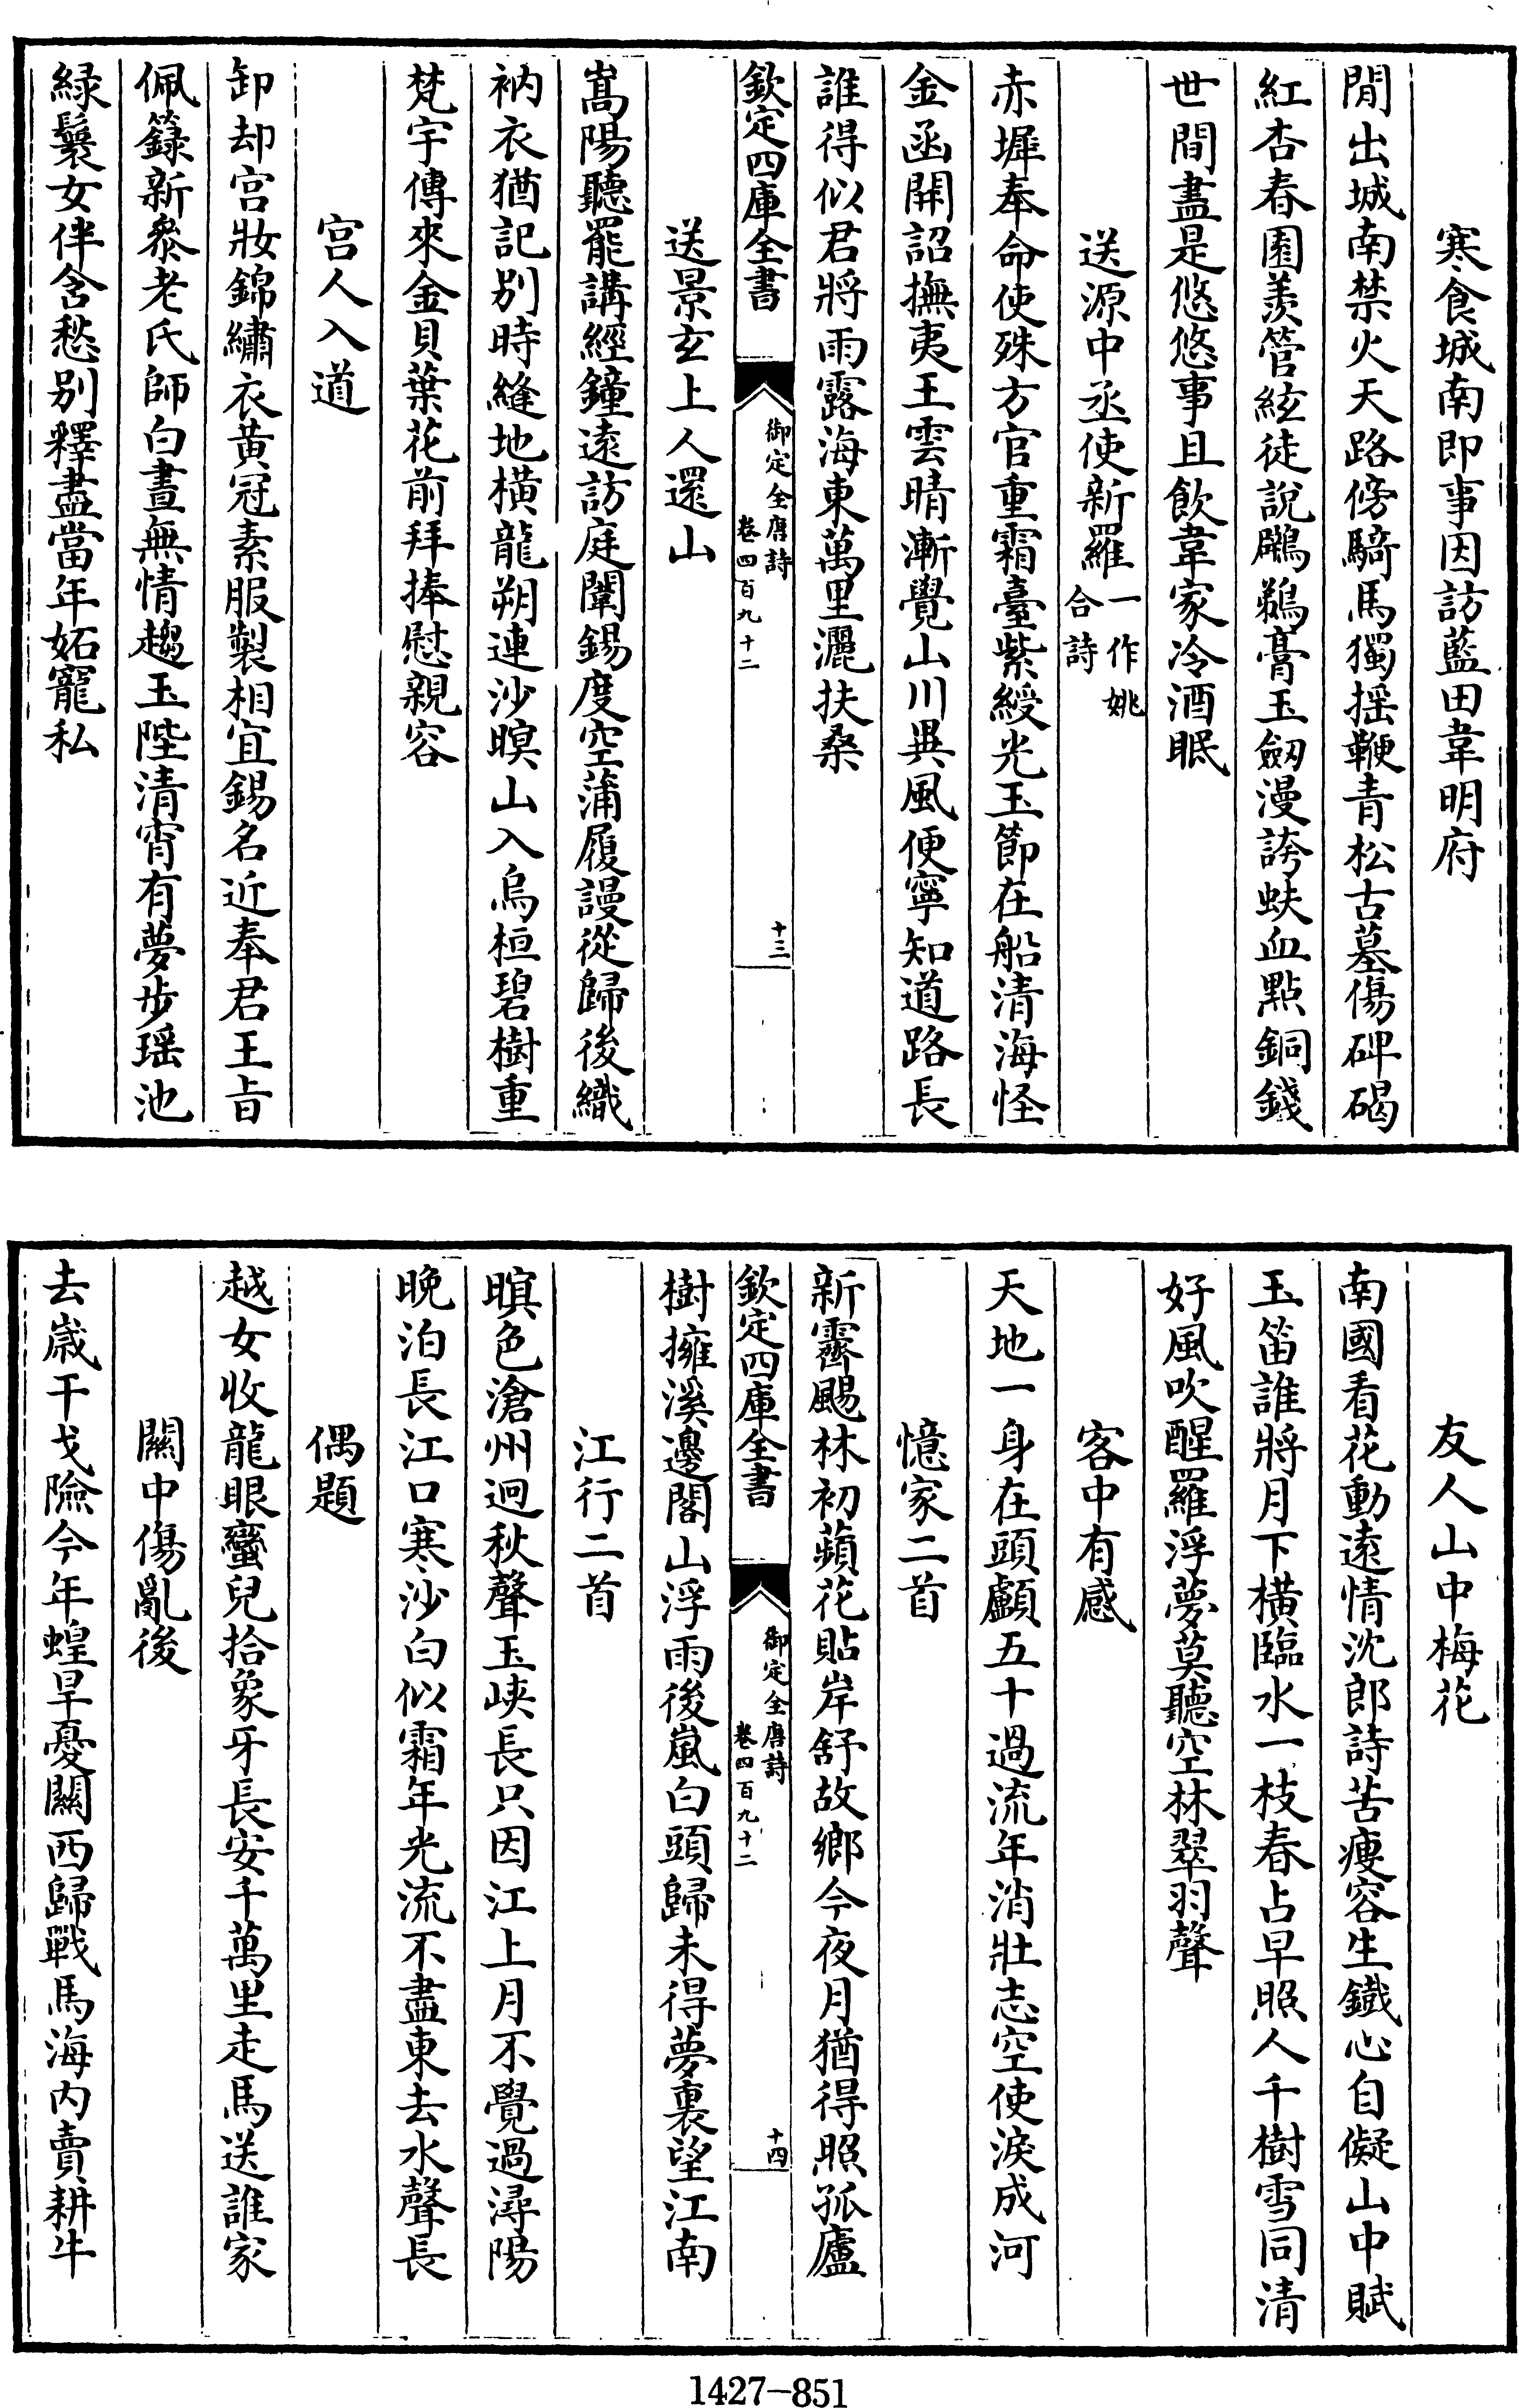 寒食城南即事因訪藍田韋明府
閒出城南禁火天路傍騎馬獨揺鞭青松古墓傷碑碣
紅杏春園羡管絃徒說鷿鵜膏玉劒漫誇蚨血點銅錢
世間盡是悠悠事且飲韋家冷酒眠
送源中丞使新羅一作姚合詩
赤墀奉命使殊方官重霜臺紫綬光玉節在船清海怪
金函開詔撫夷王雲晴漸覺山川異風便寧知道路長
誰得似君將雨露海東萬里灑扶桑
欽定四庫全書
御定全唐詩
卷四百九十二
十三
送景玄上人還山
嵩陽聽罷講經鐘遠訪庭闈錫度空蒲履謾從歸後織
衲衣猶記別時縫地橫龍朔連沙暝山入烏桓碧樹重
梵宇傳來金貝葉花前拜捧慰親容
宫人入道
卸却宫妝錦繡衣黄冠素服製相宜錫名近奉君王旨
佩籙新叅老氏師白晝無情趨玉陛清宵有夢步瑶池
緑鬟女伴含愁别釋盡當年妬寵私
友人山中梅花
南國看花動遠情沈郎詩苦瘦容生鐵心自儗山中賦
玉笛誰將月下橫臨水一枝春占早照人千樹雪同清
好風吹醒羅浮夢莫聽空林翠羽聲
客中有感
天地一身在頭顱五十過流年消壯志空使淚成河
憶家二首
新霽颺林初蘋花貼岸舒故鄉今夜月猶得照孤廬
欽定四庫全書
御定全唐詩
卷四百九十二
十四
樹擁溪邊閣山浮雨後嵐白頭歸未得夢裏望江南
江行二首
暝色滄州迥秋聲玉峽長只因江上月不覺過潯陽
晚泊長江口寒沙白似霜年光流不盡東去水聲長
偶題
越女收龍眼蠻兒拾象牙長安千萬里走馬送誰家
關中傷亂後
去歲干戈險今年蝗旱憂關西歸戰馬海内賣耕牛
1427-851